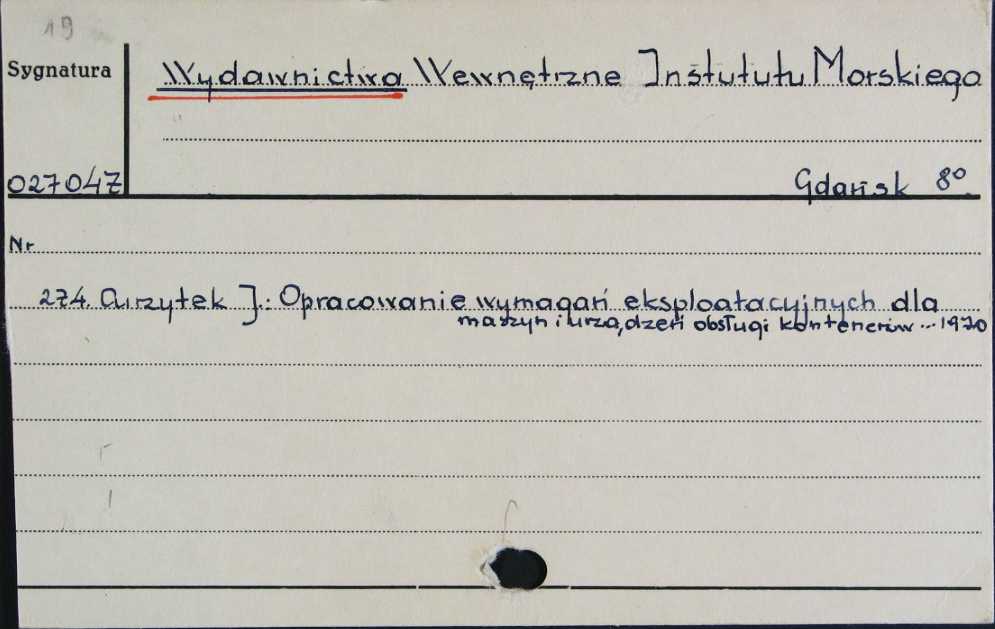 19
Sygnatura
Wydawnictwa Wewnętrzne Instytutu Morskiego
027047
Gdańsk 8°
Nr
274. Curzytek J.: Opracowanie wymagań eksploatacyjnych dla
maszyn i urządzeń obsługi kontenerów ... 1970